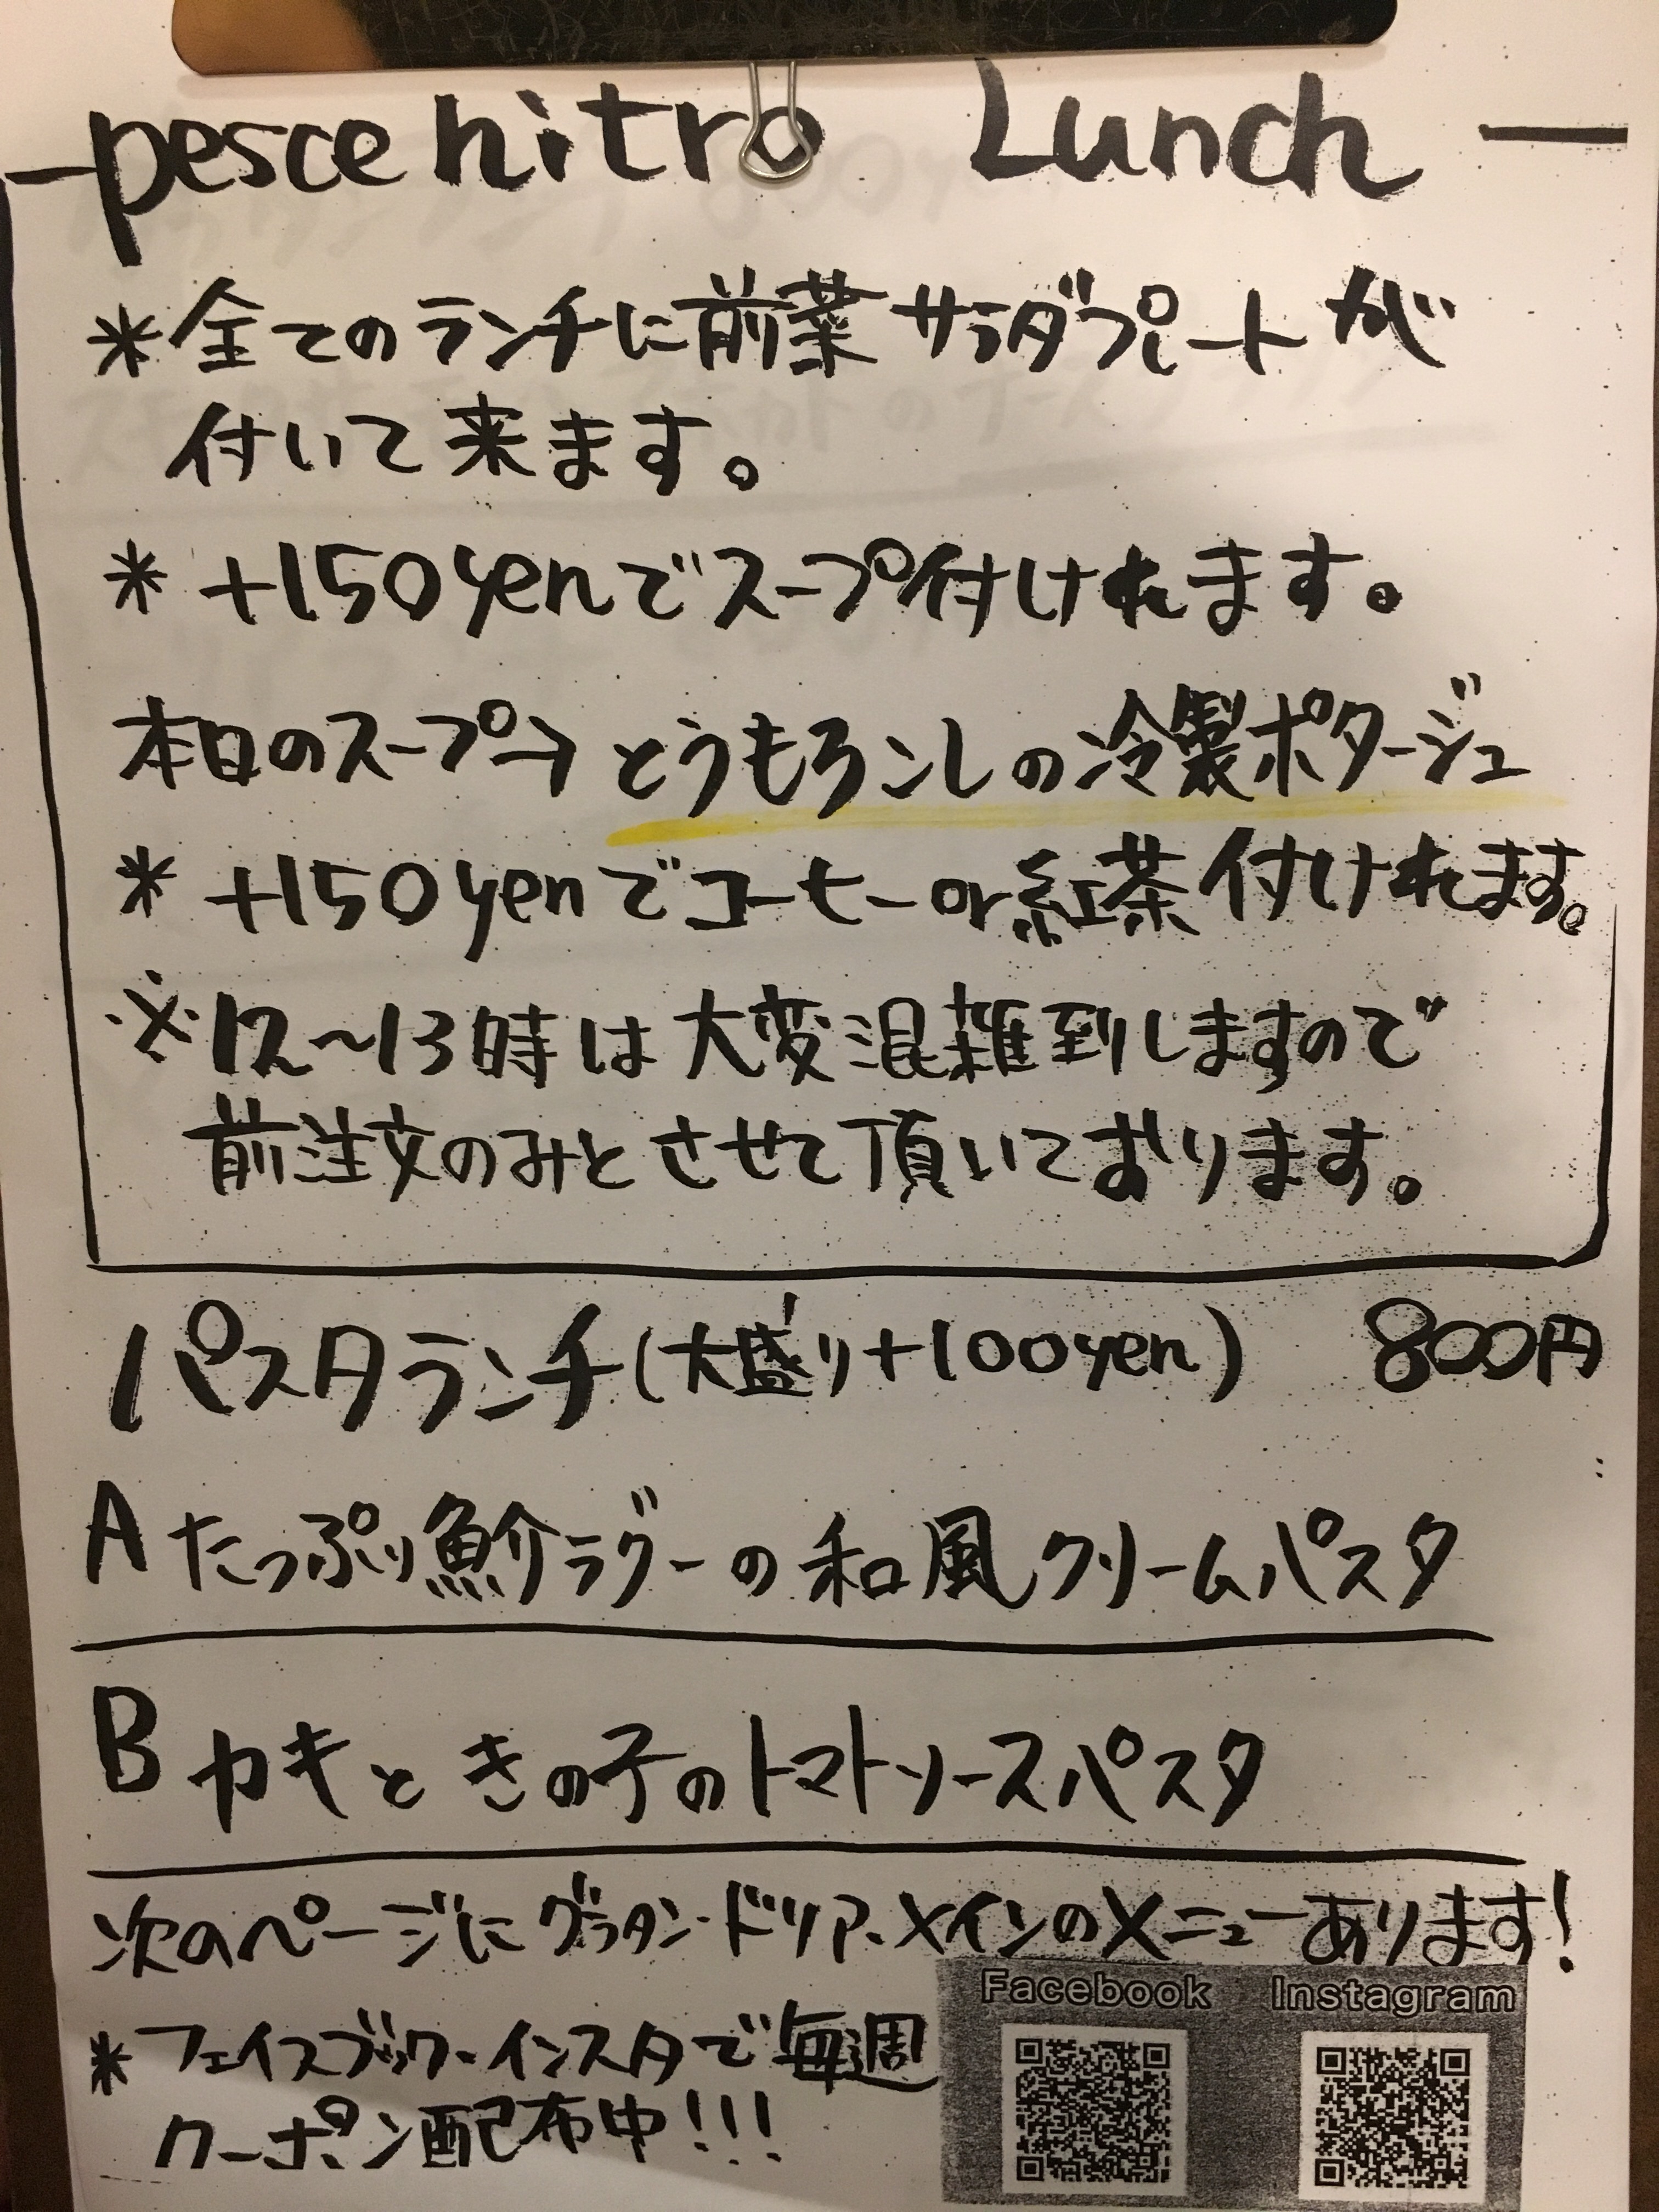 pesce nitro Lunch
*全てのランチに前菜サラダプレートが
付いて来ます。
*+150yenでスープ付けれます。
本日のスープ→とうもろこしの冷製ポタージュ
*+150yenでコーヒーor紅茶付けれます。
※12~13時は大変混雑到しますので
前注文のみとさせて頂いております。
パスタランチ(大盛り+100yen) 800円
A たっぷり魚介ラグーの和風クリームパスタ
B カキときの子のトマトソースパスタ
次のページにグラタン・ドリア、メインのメニューあります!
Facebook Instagram
*フェイスブック・インスタで毎週
クーポン配布中!!!